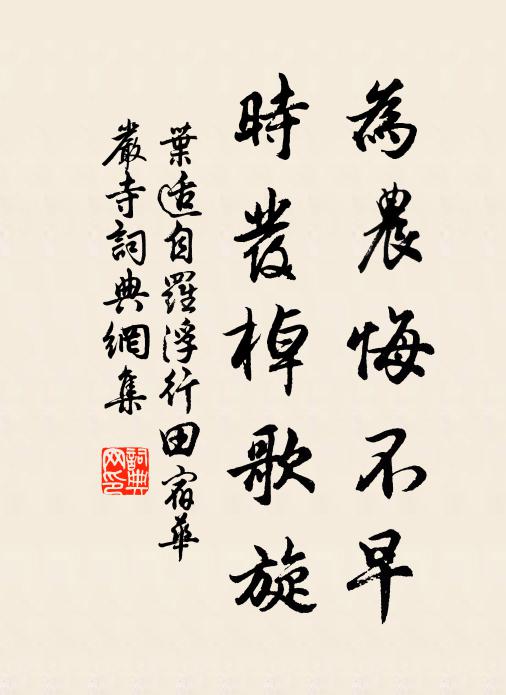 為農悔不早
時發棹歌旋
葉適自羅浮行田宿華
嚴寺詞典網集
詞典网印